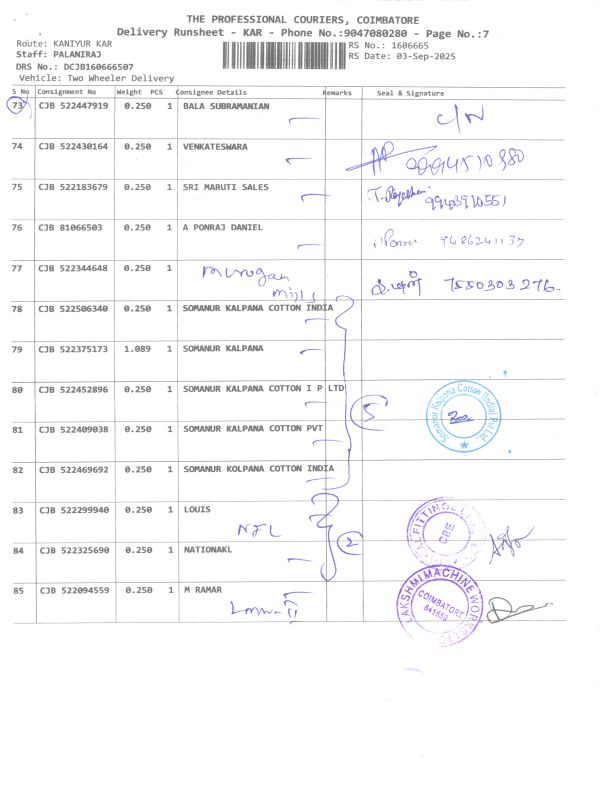 THE PROFESSIONAL COURIERS, COIMBATORE
Delivery Runsheet - KAR - Phone No.:9047080280 - Page No.:7
Route: KANIYUR KAR
RS No.: 1606665
Staff: PALANIRAJ
RS Date: 03-Sep-2025
DRS No.: DCJB160666507
Vehicle: Two Wheeler Delivery
S No Consignment No Weight PCS Consignee Details Remarks Seal & Signature
73 CJB 522447919 0.250 1 BALA SUBRAMANIAN C/N
74 CJB 522430164 0.250 1 VENKATESWARA
75 CJB 522183679 0.250 1 SRI MARUTI SALES
76 CJB 81066503 0.250 1 A PONRAJ DANIEL 9486241137
77 CJB 522344648 0.250 1 Murugan Mills 7550303276.
78 CJB 522506340 0.250 1 SOMANUR KALPANA COTTON INDIA
79 CJB 522375173 1.089 1 SOMANUR KALPANA
80 CJB 522452896 0.250 1 SOMANUR KALPANA COTTON I P LTD 5
Somanur Kalpana Cotton (India) Pvt Ltd.
81 CJB 522409038 0.250 1 SOMANUR KALPANA COTTON PVT
82 CJB 522469692 0.250 1 SOMANUR KOLPANA COTTON INDIA
83 CJB 522299940 0.250 1 LOUIS
NFL 2
FITTINGS
CBE
84 CJB 522325690 0.250 1 NATIONAKL
85 CJB 522094559 0.250 1 M RAMAR
LAKSHMI MACHINE WORKS LTD
COIMBATORE
641659